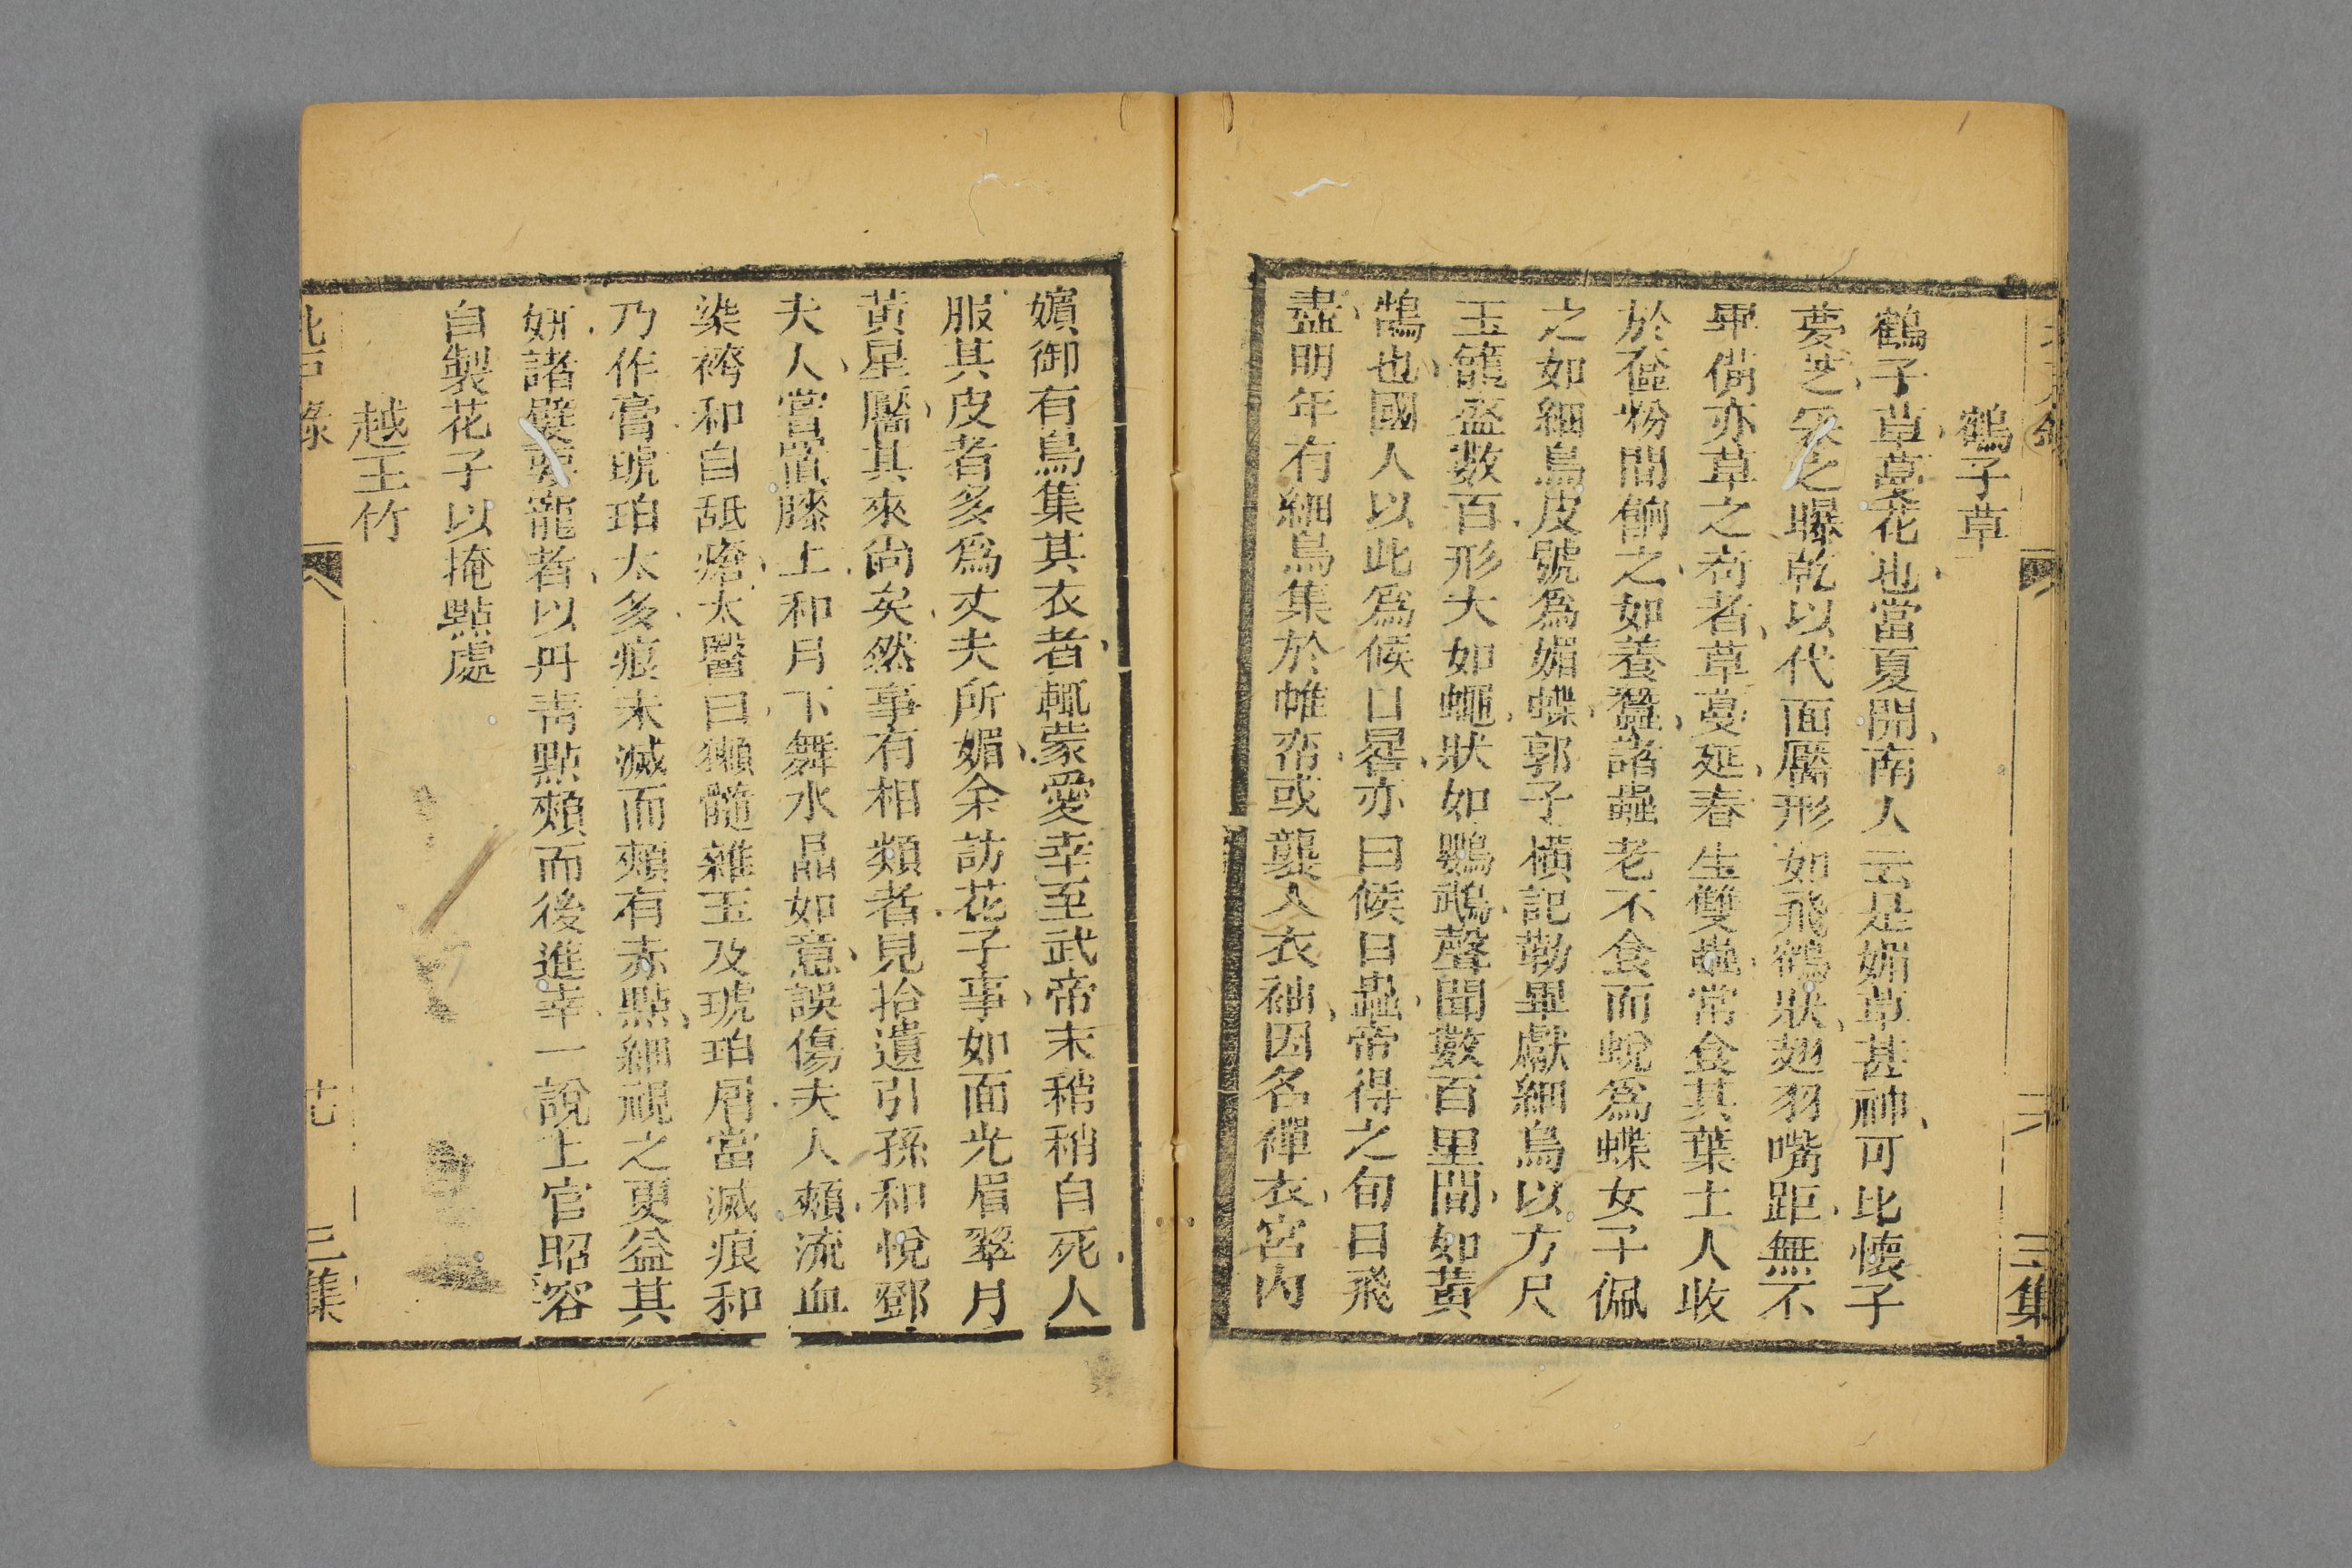 三集
鶴子草
鶴子草蔓花也當夏開南人云是媚草甚神可比懷子
夢芝采之曝乾以代面靨形如飛鶴狀翅羽嘴距無不
畢備亦草之奇者草蔓延春生雙蟲常食其葉土人收
於奩粉間飼之如養蠶諸蟲老不食而蛻為蝶女子佩
之如細鳥皮號為媚蝶郭子橫記勒畢獻細鳥以方尺
玉籠盛數百形大如蠅狀如鸚鵡聲聞數百里間如黃
鵠也國人以此為候日晷亦曰候日蟲帝得之旬日飛
盡明年有細鳥集於帷帟或襲人衣袖因名襌衣宮內
嬪御有鳥集其衣者輒蒙愛幸至武帝末稍稍自死人
服其皮者多為丈夫所媚余訪花子事如面光眉翠月
黃星靨其來尚矣然事有相類者見拾遺引孫和悅鄧
夫人嘗置膝上和月下舞水晶如意誤傷夫人頰流血
染袴和自舐瘡太醫曰獺髓雜玉及琥珀屑當滅痕和
乃作膏琥珀太多痕未滅而頰有赤點細視之更益其
妍諸嬖要寵者以丹青點頰而後進幸一說上官昭容
自製花子以掩點處
越王竹
北戶錄 三集